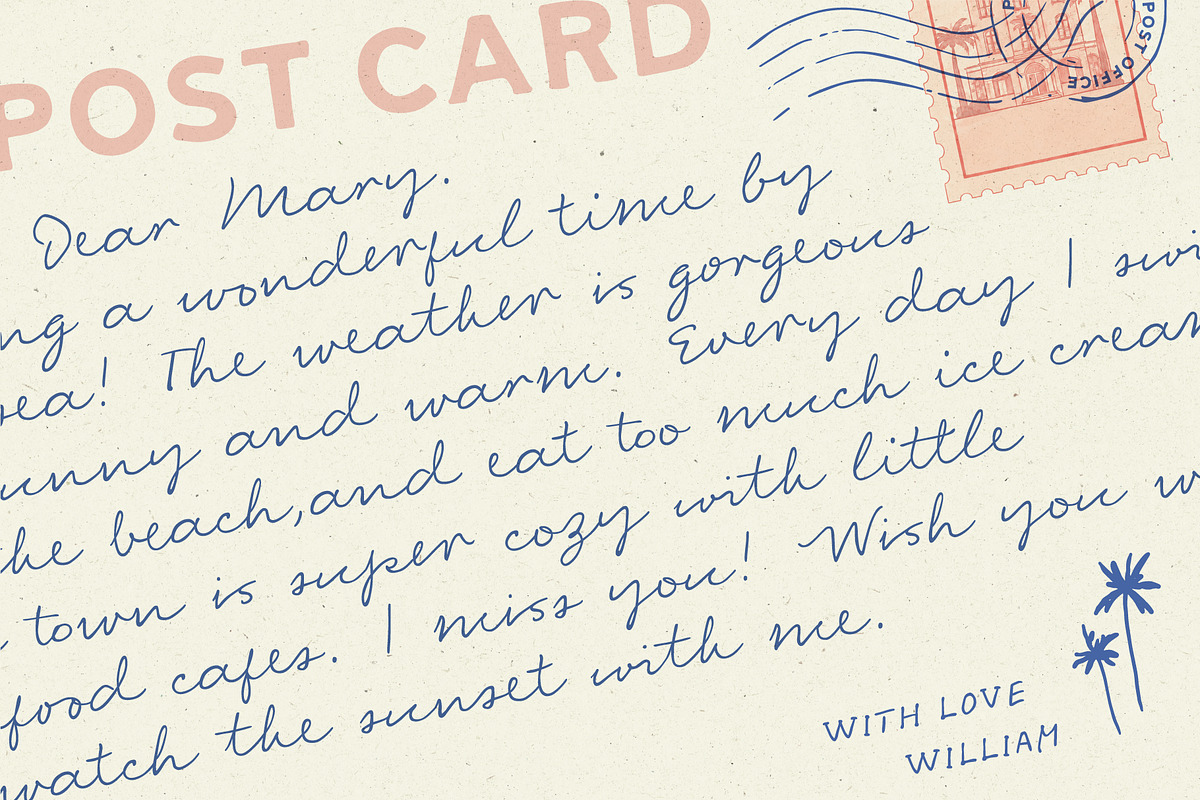 POST CARD
POST OFFICE
Dear Mary.
a wonderful time by
The weather is gorgeous
and warm. Every day I
beach, and eat too much ice
town is super cozy with little
food cafes. I miss you! Wish you
watch the sunset with me.
WITH LOVE
WILLIAM